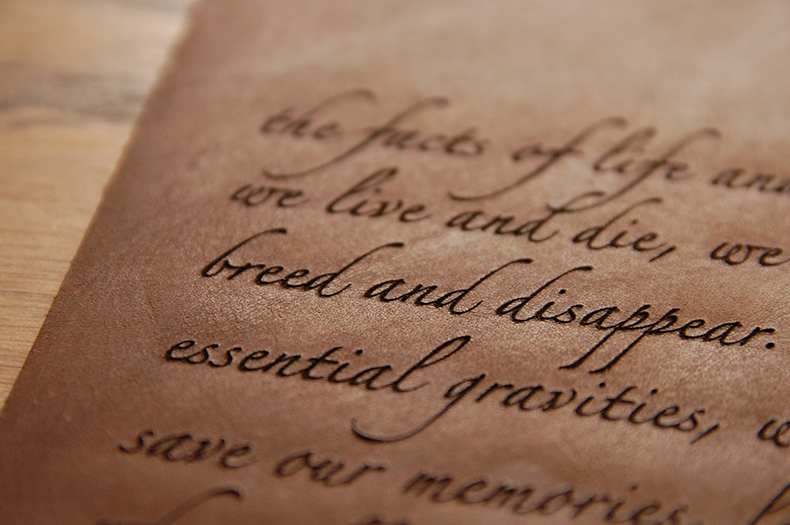 the facts of life and
we live and die, we
breed and disappear.
essential gravities,
save our memories